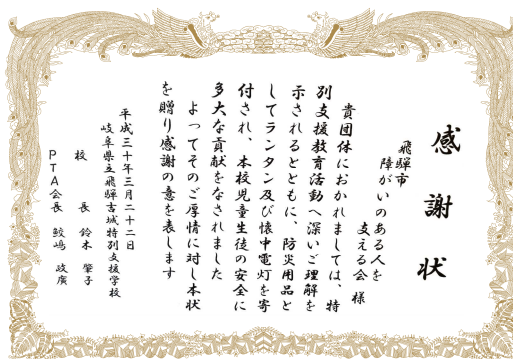 感謝状
飛騨市
障がいのある人を
支える会 様
貴団体におかれましては、特
別支援教育活動へ深いご理解を
示されるとともに、防災用品と
してランタン及び懐中電灯を寄
付され、本校児童生徒の安全に
多大な貢献をなされました
よってそのご厚情に対し本状
を贈り感謝の意を表します
平成三十年三月二十二日
岐阜県立飛騨吉城特別支援学校
校長 鈴木 肇子
PTA会長 鮫嶋 政廣